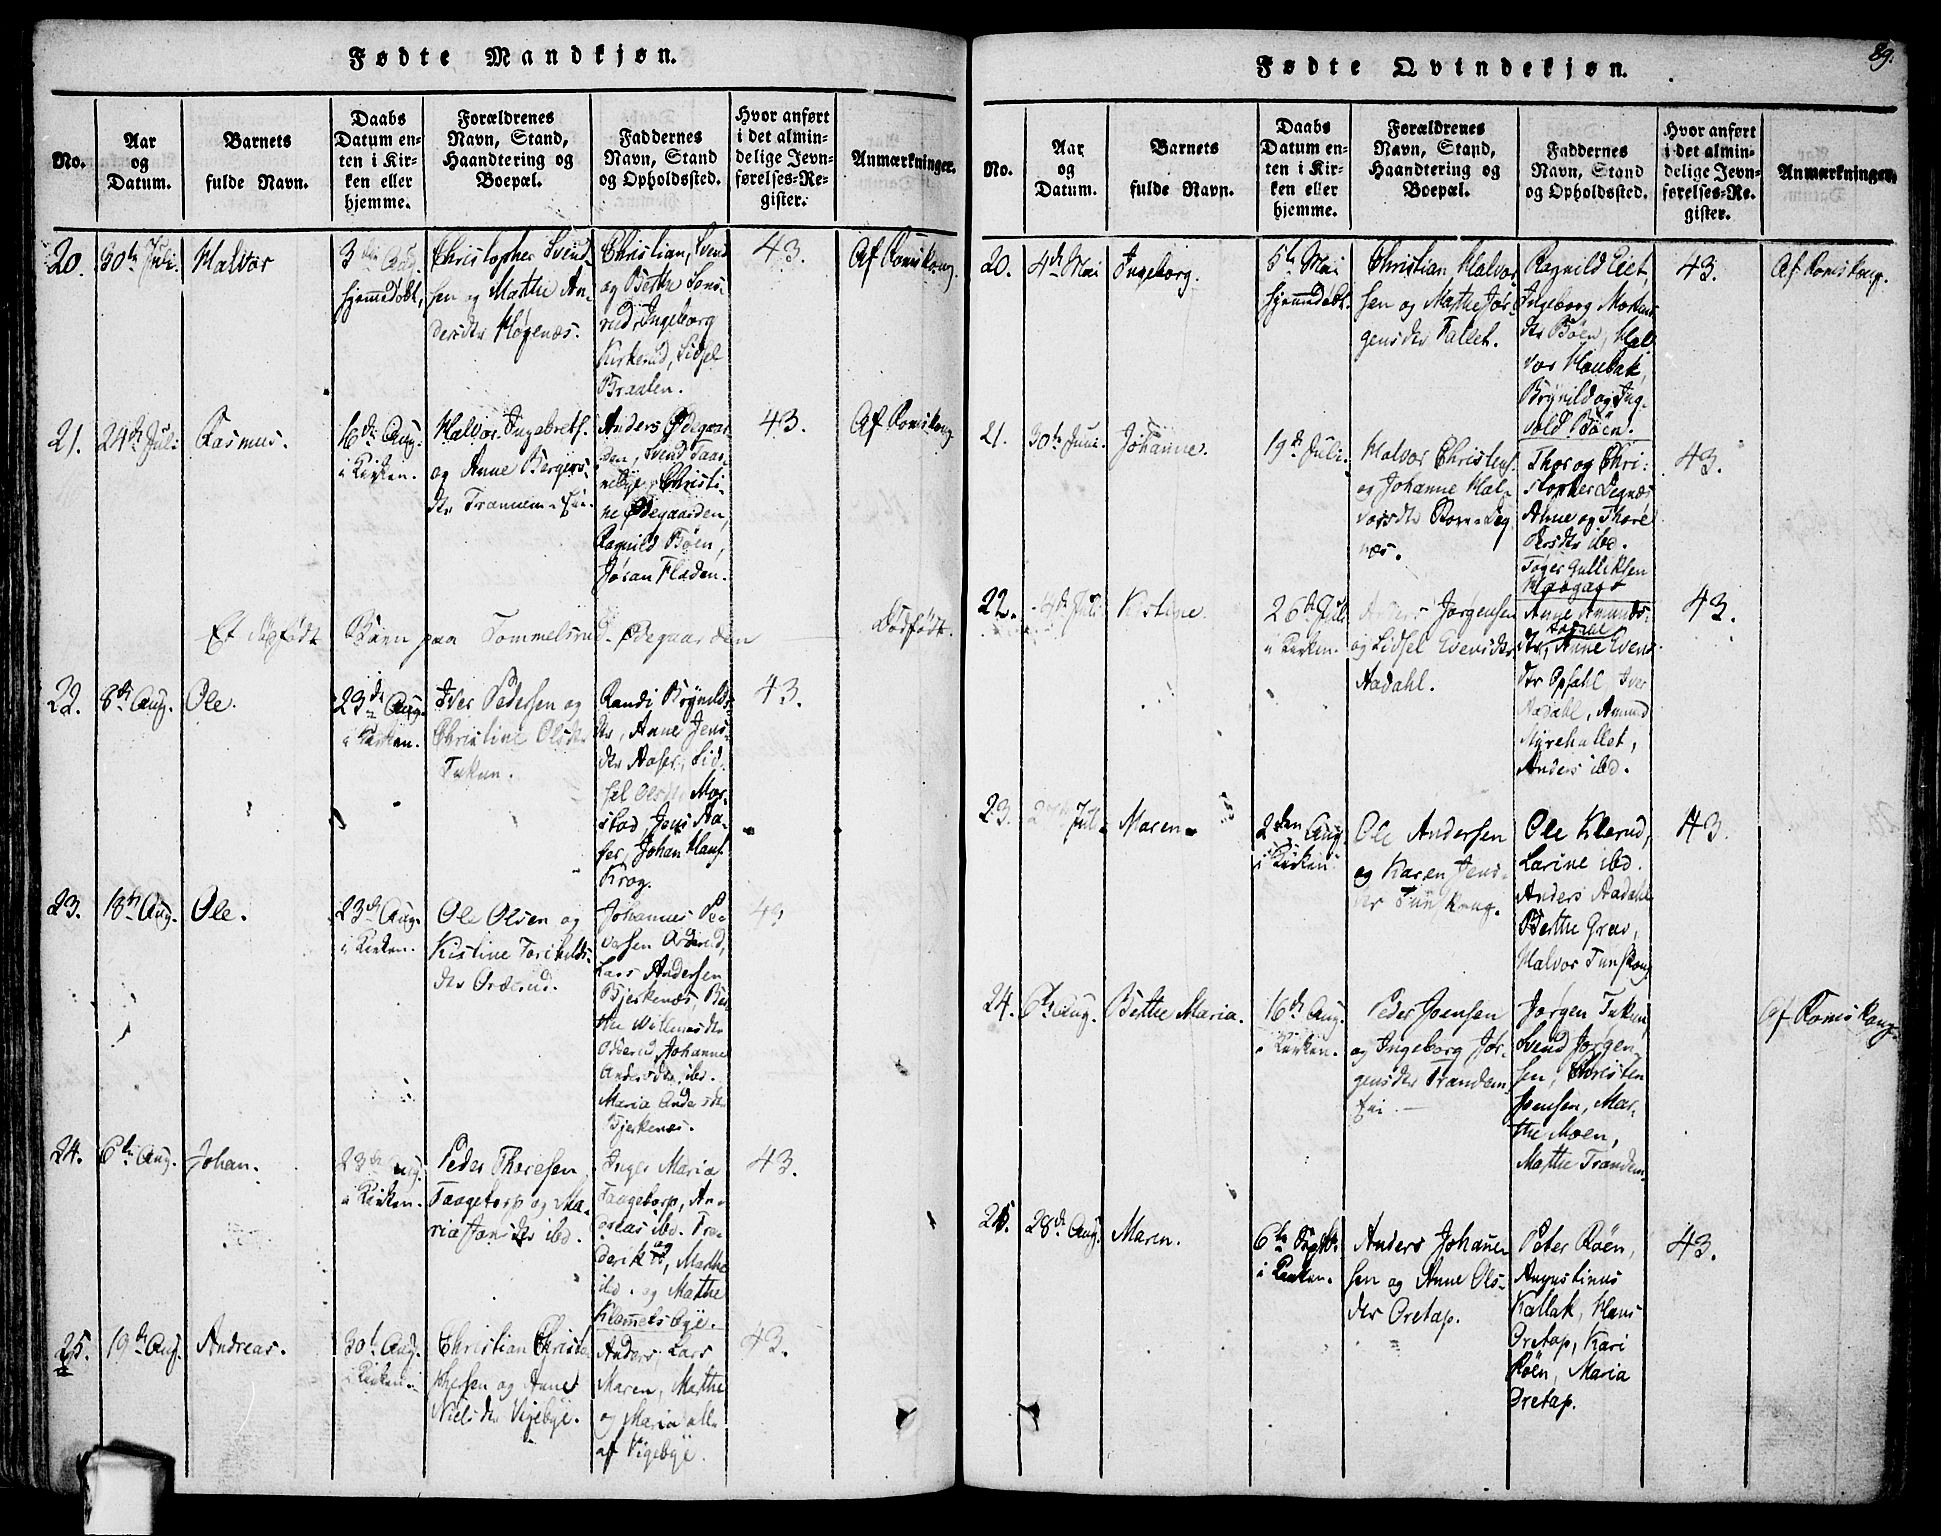 Fødte Mandkjøn.
No.
Aar
og
Datum.
Barnets
fulde Navn.
Daabs
Datum en-
ten i Kir-
ken eller
hjemme.
Forældrenes
Navn, Stand,
Haandtering og
Boepæl.
Faddernes
Navn, Stand
og Opholdssted.
Hvor anført
i det almin-
delige Jevn-
førelses-Re-
gister.
Anmærkninger.
20.
30te Juli.
Halvor
3die Aug.
hjemmedöbt,
Christopher Svend-
sen og Marthe An-
dersdtr Høgenæs.
Christian, Svend
og Berthe
Ingeborg
Kirkerud, Lidsel
Braaten.
43.
Af Romskoug.
21.
24de Juli.
Rasmus.
16de Aug.
i Kirken.
Halvor Ingebrets.
og Anne Bergers-
dtr Tranem
Anders Ødegaar-
den, Svend Taar-
nebye, Christi-
ne Ødegaarden,
Ragnild Böen,
Jöran Fladen.
43.
Af Romskoug
Et dødfödt Barn paa Tommelsrud Ødegaarden
Dödfödt.
22.
8de Aug.
Ole.
23de Aug.
i Kirken.
Iver Pedersen og
Christine Olsdtr
Tukun.
Randi Brynilds-
dtr, Anne Jens-
dtr Aaser, Lid-
sel Olsdtr Mor-
stad, Jens Aa-
ser, Johan Hans.
Krog.
43.
23.
18de Aug.
Ole.
23de Aug.
i Kirken.
Ole Olsen og
Kistine Torkilds-
dtr Ordrud.
Johannes
Lars Andersen
Bjerkenæs, Ber-
the Willumsdtr
Johanne
Andersdtr ibd.
Maria Andersdtr
Bjerkenæs.
43
24.
6te Aug.
Johan.
23de Aug.
i Kirken.
Peder Thoresen
Taagetorp og Ma-
ria ibd.
Inger Maria
Taagetorp, An-
dreas ibd. Fre-
derik og, Marthe
ibd. og Marthe
Klammelsbye.
43.
25.
19de Aug.
Andreas.
30te Aug.
i Kirken.
Christian Christo-
phersen og Anne
Nielsdtr Vigebye.
Anders, Lars
Maren, Marthe
og Maria alle
af Vigebye.
43.
89.
Fødte Qvindekjøn.
No.
Aar
og
Datum.
Barnets
fulde Navn.
Daabs
Datum en-
ten i Kir-
ken eller
hjemme.
Forældrenes
Navn, Stand,
Haandtering og
Boepæl.
Faddernes
Navn, Stand
og Opholdssted.
Hvor anført
i det almin-
delige Jevn-
førelses-Re-
gister.
Anmærkninger.
20.
4de Mai
Ingeborg.
5te Mai
hjemmedöbt.
Christian Halvor-
sen og Marthe Jör-
gensdtr Fallet.
Ragnild Eiet,
Ingeborg Mortens
dtr Böen, Hal-
vor Houbak,
Brynild og Ing-
vold Böen.
43.
Af Romskoug.
21.
30te Juni.
Johanne.
19de Juli.
Halvor Christens.
og Johanne Hal-
vorsdtr
næs.
Thor og Chri-
stopher Legnæs
Anne og Thore
ibd.
Töger Gulliksen
Haagaas
43.
22.
4de Juli
Kistine.
26de Juli
i Kirken.
Anders Jørgensen
og Lidsel Evensdtr
Aadahl.
Anne Amunds-
dtr, Anne Evens-
dtr Opsahl, Iver
Aadahl, Amund
Myrehullet,
Anders ibd.
43.
23.
Juli
Maren.
2den Aug.
i Kirken
Ole Andersen
og Karen Jens-
dtr Tunskoug.
Ole Klerud,
Larine ibd.
Anders Aadahl
Berthe Grav,
Halvor Tunskoug
43.
24.
6te Aug.
Bethe Maria.
16de Aug.
i Kirken.
Peder Joensen
og Ingeborg Jör-
gensdtr Trandem
Eie.
Jørgen Tukun,
Svend Jørgen-
sen, Christen
Joensen, Mar-
the Moen,
Marthe Trandem.
Af Romskoug.
25.
28de Aug.
Maren.
6te Septbr.
i Kirken.
Anders Johan-
sen og Anne Ols-
dtr Oretap.
Peter Röen,
Augustinus
Kallak, Hans
Oretap, Kari
Röen, Maria
Oretap.
43.